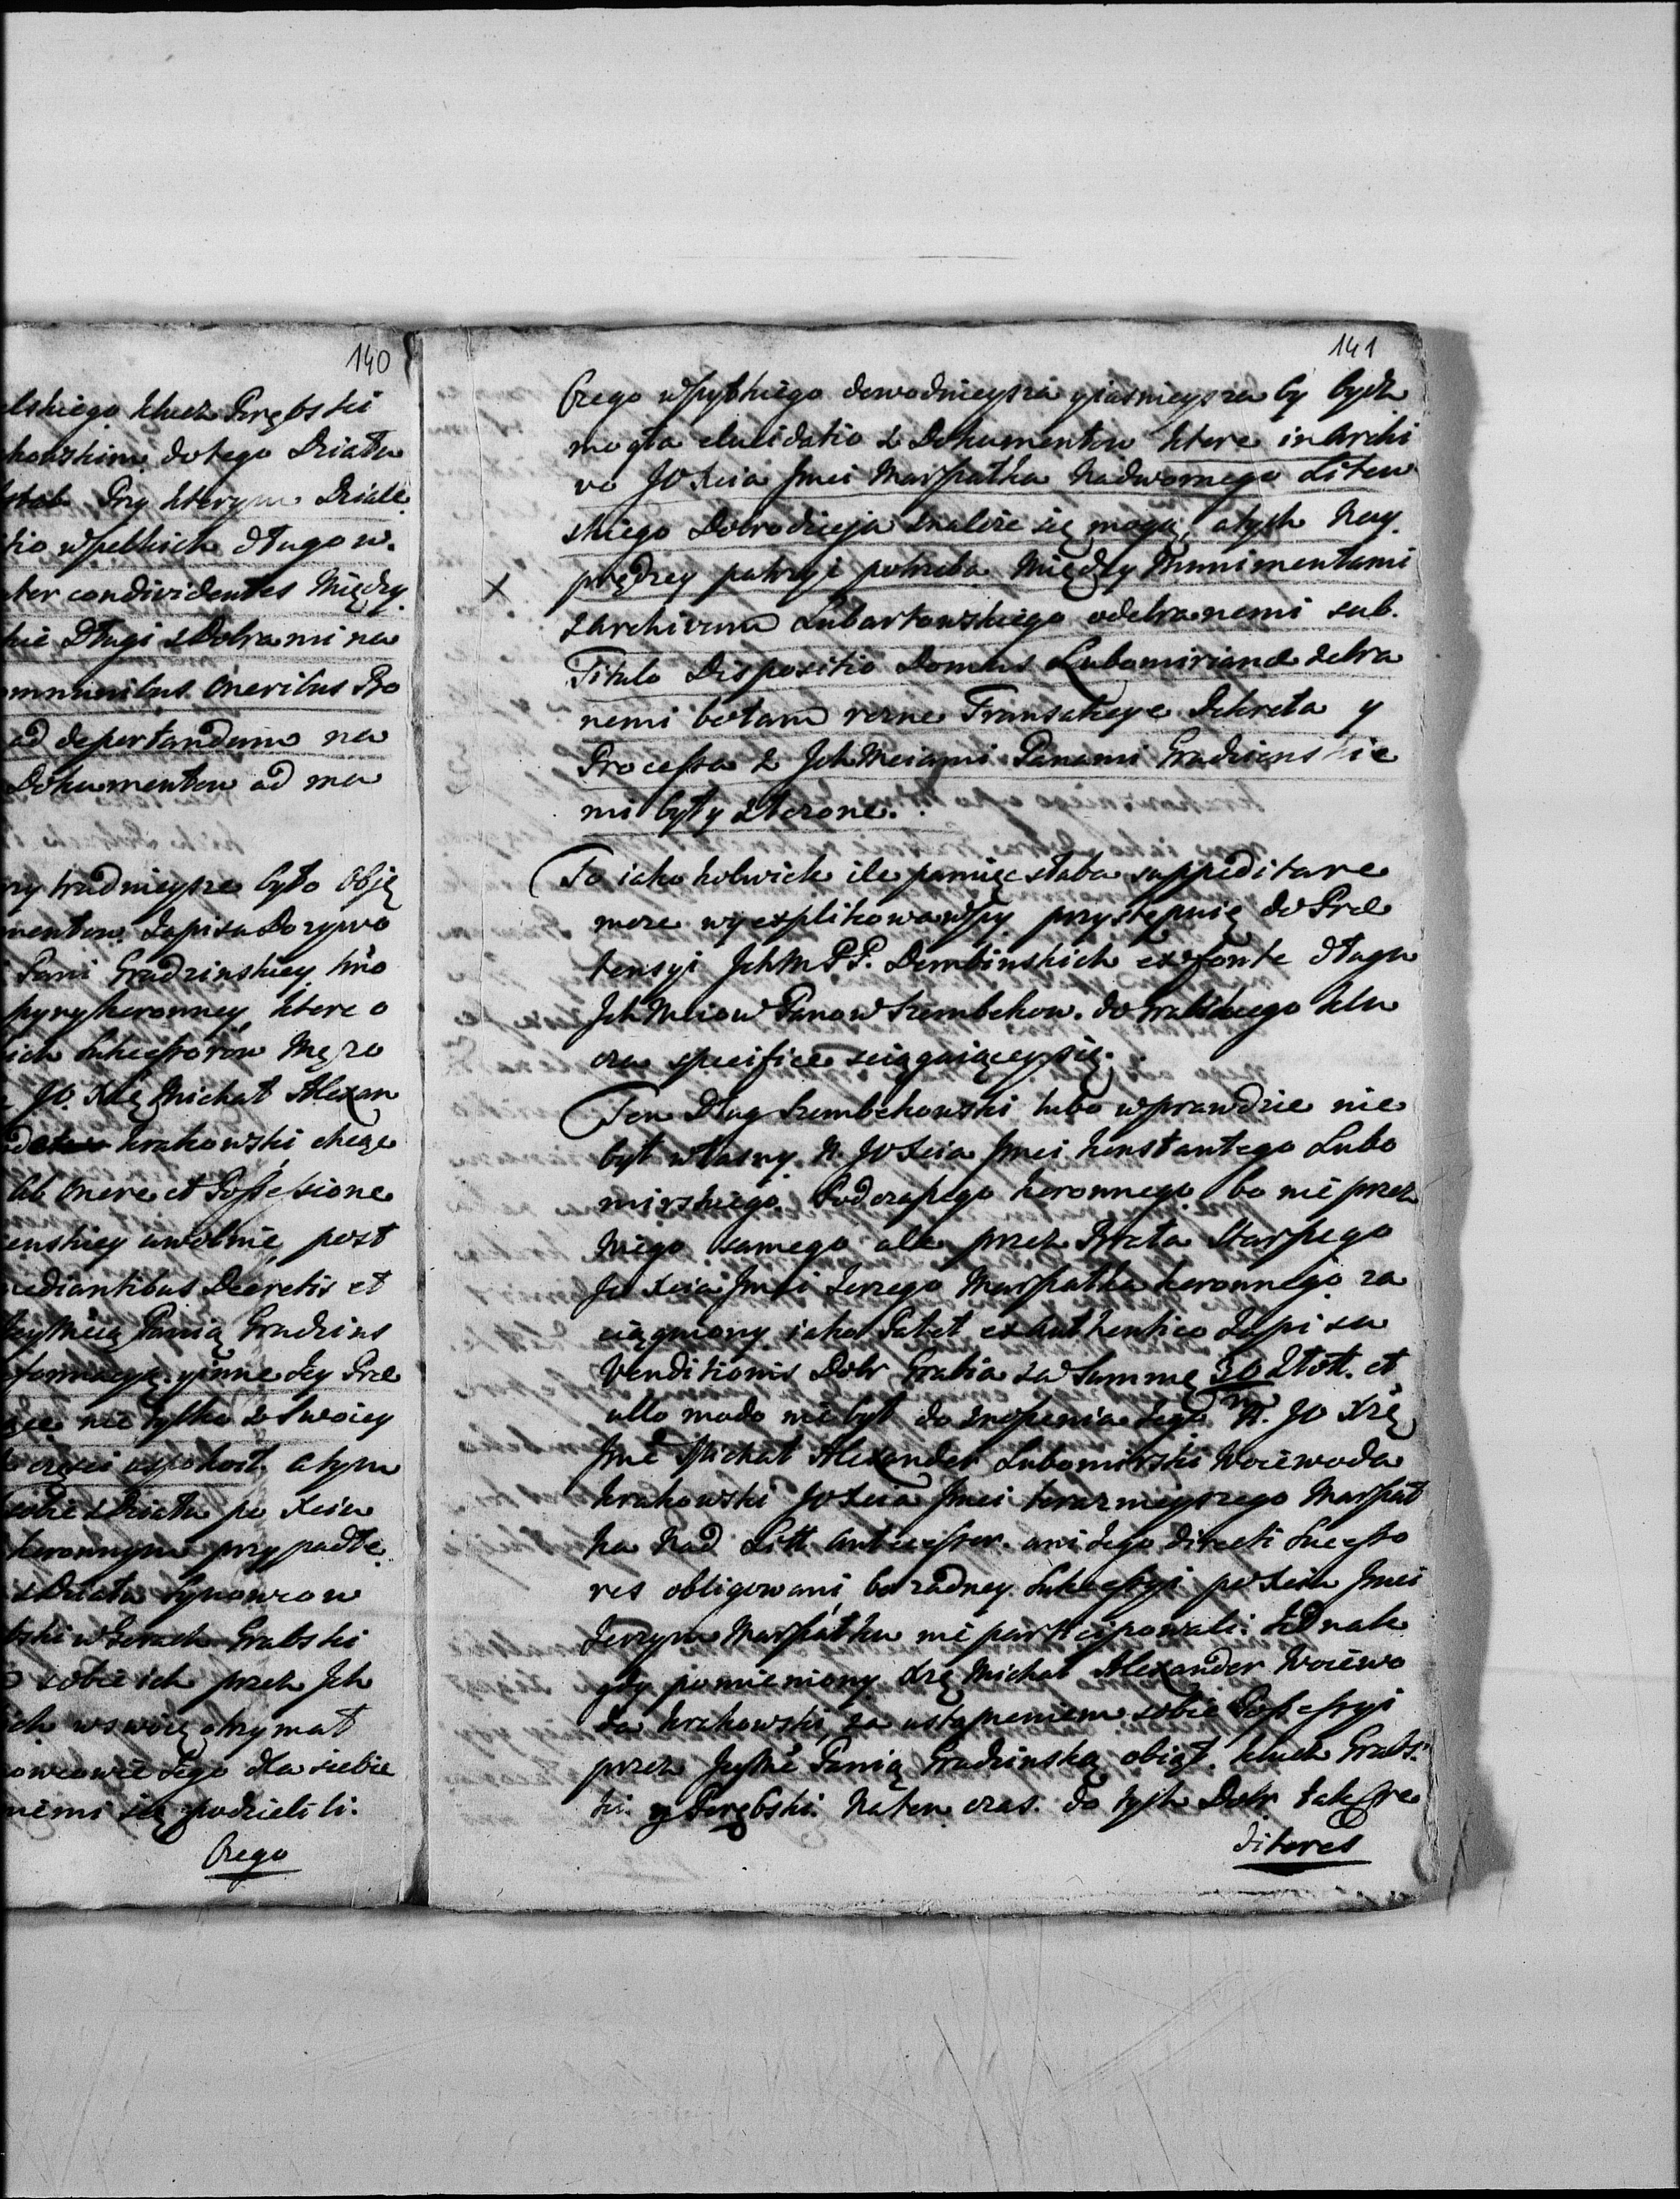 140
elskiego klucz Porębski
kowskim do tego Działu
Przy ktorym Dziale
wszelkich długow.
inter condividentes Między
kie Długi z Dobrami na
ommunibus Oneribus Pro
ad deportandum na
Dokumentow ad ma
trudnieysze było Obję
mentow Zapisu Dozywo
Pani Grudzinskiey
koronney, ktore o
ich Sukcessorow Męza
JO. Xże Michał Alexan
krakowski chcąc
ab Onere et Possessione
enskiey uwolnić, post
mediantibus Decretis et
Panią Grudzins
y inne Jey Præ
nie tylko z Swoiey
części uspokoił, a tym
sobie z Działu po Xciu
koronnym przypadłe
z Działu Synowcow
bski w Kerach Grabski
sobie ich przez Jch
ich w swoię otrzymał
Jego dla siebie
niemi się podzielili.
Czego
141
Czego wszytkiego dowodnieysza y iasnieysza by bydz
mogła elucidatio z Dokumentow ktore in Archi
vo JO Xcia Jmci Marszałka Nadwornego Litew
skiego Dobrodzieja znaliźć się mogą, a tych Nay
x prędzey patrzyć potrzeba Między Munimentami
z Archivum Lubartowskiego odebranemi sub.
Titulo Dispositio Domus Lubomirianæ zebra
nemi bo tam rozne Transakcye Dekreta y
Processa z Jch Mciami Panami Grudzinskie
mi były złozone.
To iakokolwiek ile pamięć słaba suppeditare
moze wyexplikowawszy przystępuię do Præ
tensyi JchM PP. Dembinskich ex fonte długu
Jch Mciow Panow Szembekow. do Grabskiego Klu
cza specifice sciągaiącey się.
Ten Dług Szembekowski lubo wprawdzie nie
był własny N. JO Xcia Jmci Konstantego Lubo
mirskiego Podczaszego koronnego bo nie przez
Niego samego ale przez Brata Starszego
JO Xcia Jmci Jerzego Marszałka koronnego za
ciągniony iako Patet ex Authentico Zapisu
Venditionis Dobr Grabia za Summę 30 Złott. et
m
ullo modo nie był do znoszenia Jego N. JO Xże
Jmć Michał Alexander Lubomirski Woiewoda
krakowski JO Xcia Jmci teraznieyszego Marszał
ka Nad Litt Antecessor. ani Jego directi Sucesso
res obligowani, bo zadney Sukcessyi po Xciu Jmci
Jerzym Marszałku nie participowali. Jednak
gdy pomieniony Xże Michał Alexander Woiewo
da krakowski, za ustąpieniem sobie Possessyi
przez JeyMć Panią Grudzinską obiął klucz Grabs:
ki y Porębski. Na ten czas do tych Dobr tak Cre
ditores